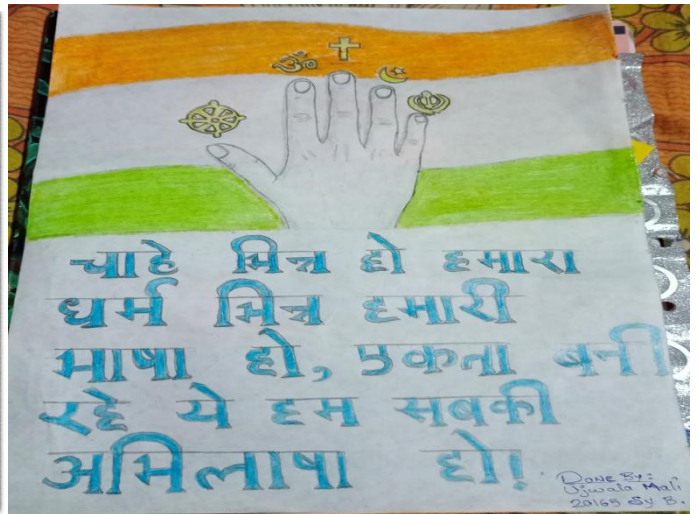 चाहे भिन्न हो हमारा
धर्म भिन्न हमारी
भाषा हो, एकता बनी
रहे ये हम सबकी
अभिलाषा हो!
DONE BY:
Ujwala Mali
20165 Sy B.